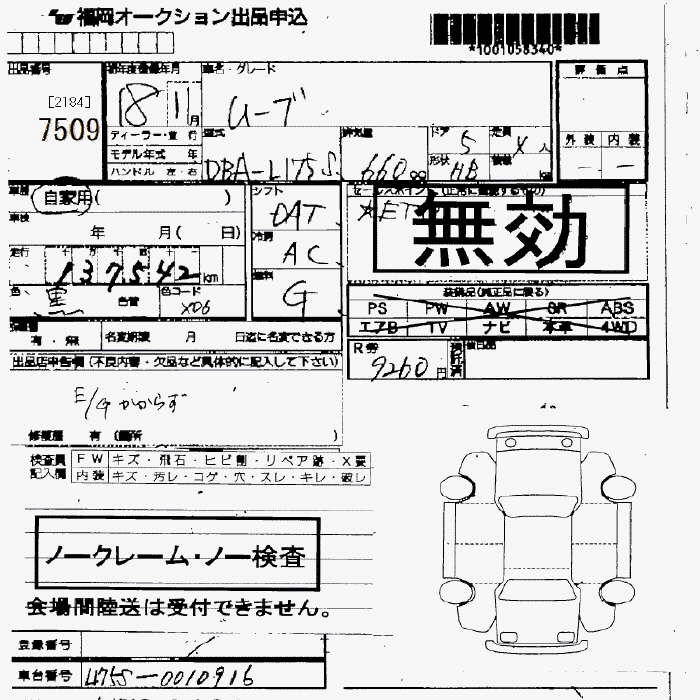 福岡オークション出品申込
*1001058340*
出品番号
[2184]
7509
初年度登録年月
18 11月
車名・グレード
ムーブ
評価点
外装 内装
ー
ディーラー・並行
モデル年式 年
ハンドル 左・右
型式
DBA-L175S
排気量
660cc
ドア 5
形状 HB
定員 4人
車歴
自家用( )
車検
年 月( 日)
走行
137542km
色 黒
色替
色コード
X06
シフト
DAT
冷房
AC
燃料
G
セールスポイント(正常に機能するもの)
無効
装備品(純正品に限る)
PS PW AW SR ABS
エアB TV ナビ 本革 4WD
R券
9260円
有・無 名変期限 月 日迄に名変できる方
出品店申告欄(不良内容・欠品など具体的に記入して下さい)
E/Gかからず
修復歴 有(箇所 )
検査員記入欄
FW キズ・飛石・ヒビ割・リペア跡・X要
内装 キズ・汚レ・コゲ・穴・スレ・キレ・破レ
ノークレーム・ノー検査
会場間陸送は受付できません。
登録番号
車台番号 L175S-0010916